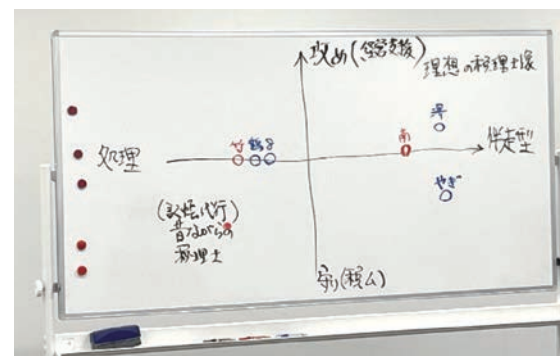 攻め(経営支援)
理想の税理士像
処理
竹
南
伴走型
やぎ
(記帳代行)
昔ながらの
税理士
守り(税ム)